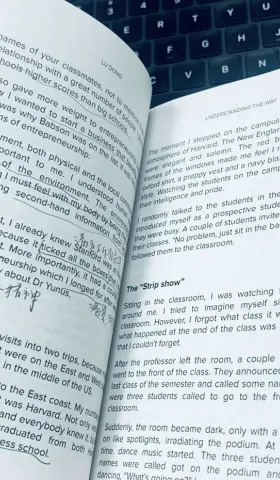 LU DONG
names of your classmates, not to mention
relationship with a great number of people
schools higher scores than big schools.
also gave more weight to entrepreneurship
I wanted to start a business that
was why Babson was on the
ns of entrepreneurship.
ment, both physical and the local
portant to me. I understood
of the environment. The
I must feel with my body
ng second-hand information.
t. I already knew Stanford
because it ticked all the boxes
t. More importantly, it had a
neurship which I longed for
y about Dr Yunus.
精神
visits into two trips, because
t were on the East and West
t in the middle of the US.
to the East coast. My
was Harvard. Not only
and everybody knew it,
graduated from both
ess school.
UNDERSTANDING THE WAY
The moment I stepped on the campus
atmosphere of Harvard. The New England
were elegant and solemn. The red
frames of the windows made me feel
oxford shirt, a preppy vest and a navy
style. Watching the students on the campus
their intelligence and pride.
I randomly talked to the students in the
introduced myself as a prospective student
they were busy. A couple of students invited
their classes. "No problem, just sit in the
followed them to the classroom.
The "Strip show"
Sitting in the classroom, I was watching
around me. I tried to imagine myself
classroom. However, I forgot what class it
what happened at the end of the class was
that I couldn't forget.
After the professor left the room, a couple
went to the front of the class. They announced
last class of the semester and called some
were three students called to go to the
classroom.
Suddenly, the room became dark, only with a
on like spotlights, irradiating the podium. At
time, dance music started. The three
names were called got on the podium and
dancing, "What's going on?"